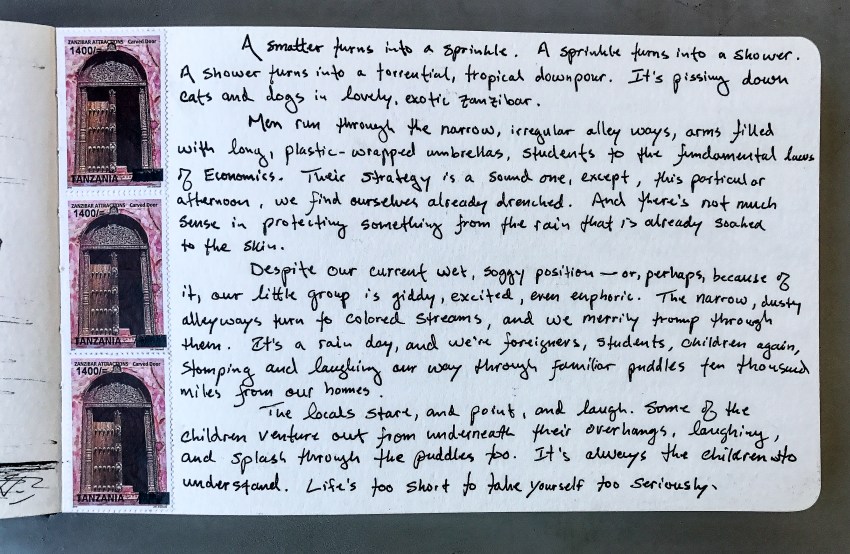 ZANZIBAR ATTRACTIONS Carved Door
1400/=
TANZANIA
ZANZIBAR ATTRACTIONS Carved Door
1400/=
TANZANIA
ZANZIBAR ATTRACTIONS Carved Door
1400/=
TANZANIA
A smatter turns into a sprinkle. A sprinkle turns into a shower.
A shower turns into a torrential, tropical downpour. It's pissing down
cats and dogs in lovely, exotic Zanzibar.
Men run through the narrow, irregular alley ways, arms filled
with long, plastic-wrapped umbrellas, students to the fundamental laws
of Economics. Their strategy is a sound one, except, this particular
afternoon, we find ourselves already drenched. And there's not much
sense in protecting something from the rain that is already soaked
to the skin.
Despite our current wet, soggy position — or, perhaps, because of
it, our little group is giddy, excited, even euphoric. The narrow, dusty
alleyways turn to colored streams, and we merrily tromp through
them. It's a rain day, and we're foreigners, students, children again,
stomping and laughing our way through familiar puddles ten thousand
miles from our homes.
The locals stare, and point, and laugh. Some of the
children venture out from underneath their overhangs, laughing,
and splash through the puddles too. It's always the children who
understand. Life's too short to take yourself too seriously.